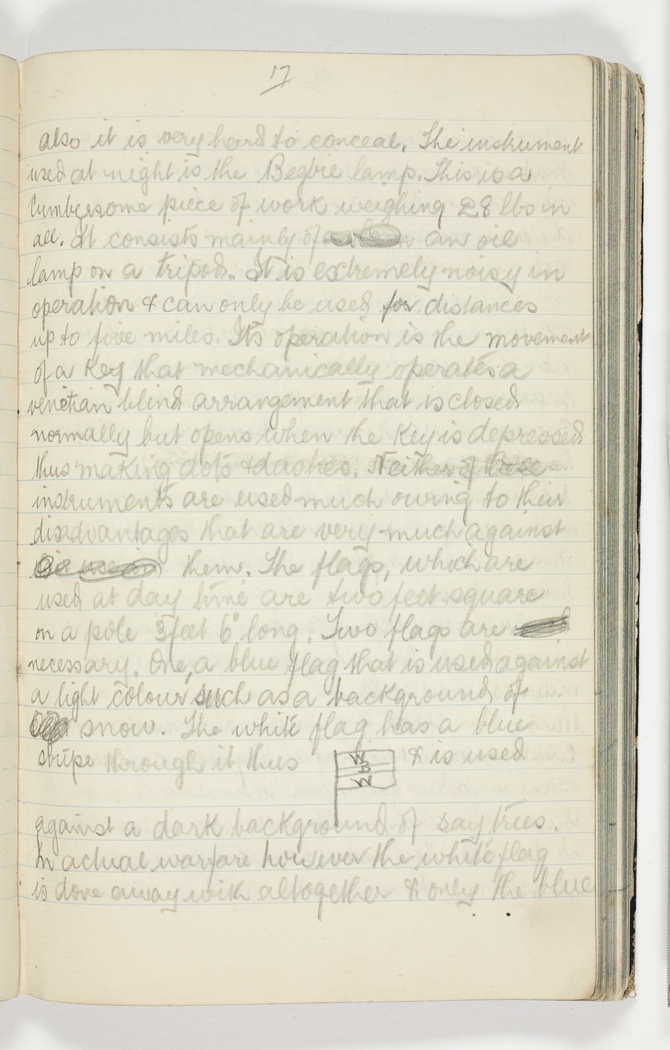 17
also it is very hard to conceal. The instrument
used at night is the Begbie lamp. This is a
Cumbersome piece of work weighing 28 lbs in
all. It consists mainly of an oil
lamp on a tripod. It is extremely noisy in
operation & can only be used for distances
up to five miles. Its operation is the movement
of a Key that mechanically operates a
venetian blind arrangement that is closed
normally but opens when the Key is depressed
thus making dots & dashes. Neither of these
instruments are used much owing to their
disadvantages that are very much against
them. The flags, which are
used at day time are two feet square
on a pole 3 feet 6" long. Two flags are
necessary. One, a blue flag that is used against
a light colour such as a background of
snow. The white flag has a blue
stripe through it thus W B W & is used
against a dark background of say trees.
In actual warfare however the white flag
is done away with altogether & only the blue